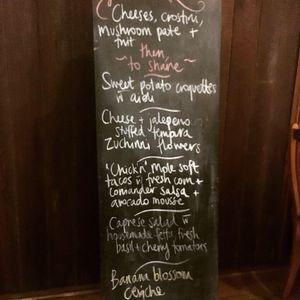 Cheeses, crostini,
mushroom pate +
fruit
then,
to share
Sweet potato croquettes
w aioli
Cheese + jalepeno
stuffed tempura
Zuchinni flowers
'Chick'n' Mole soft
tacos w fresh corn +
coriander salsa +
avocado mousse
Caprese salad w
housemade feta fresh
basil + cherry tomatoes
Banana blossom
ceviche